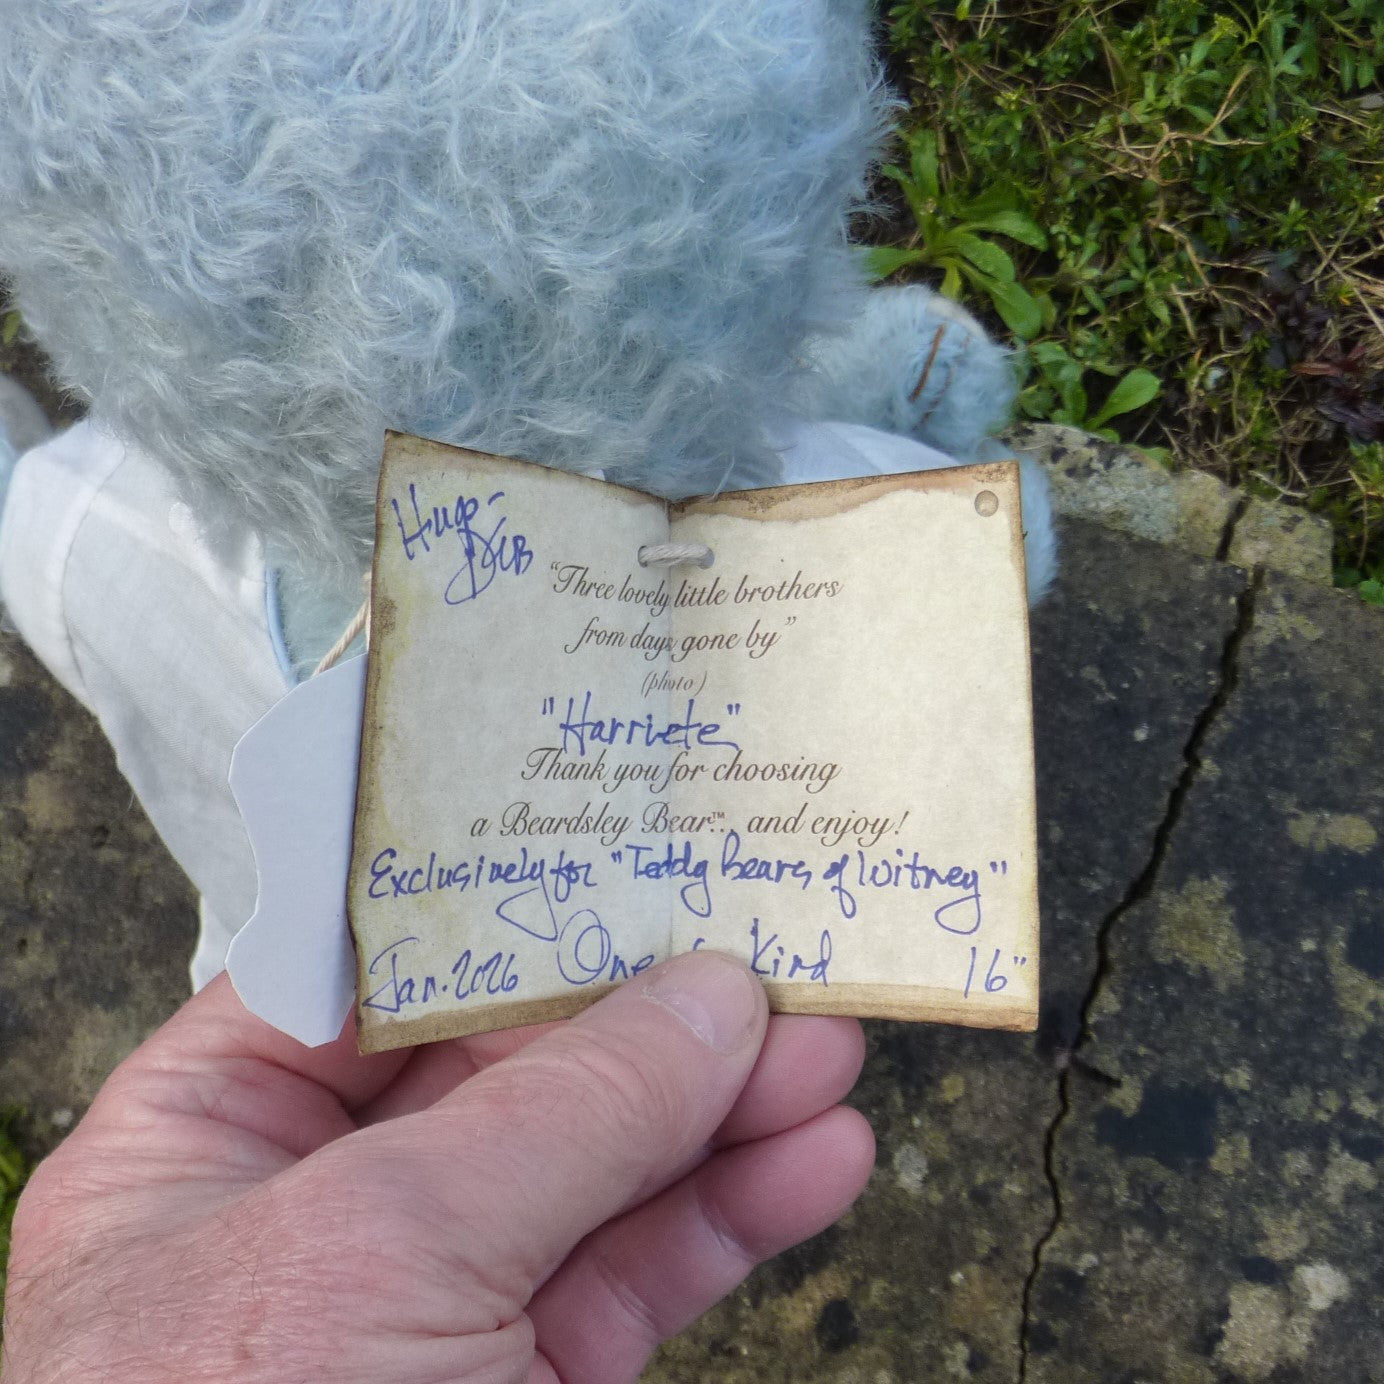 Hugs-
"Three lovely little brothers
from days gone by"
(photo)
"Harriete"
Thank you for choosing
a Beardsley Bear™... and enjoy!
Exclusively for "Teddy Bears of Witney"
Jan. 2026 One Kind 16"